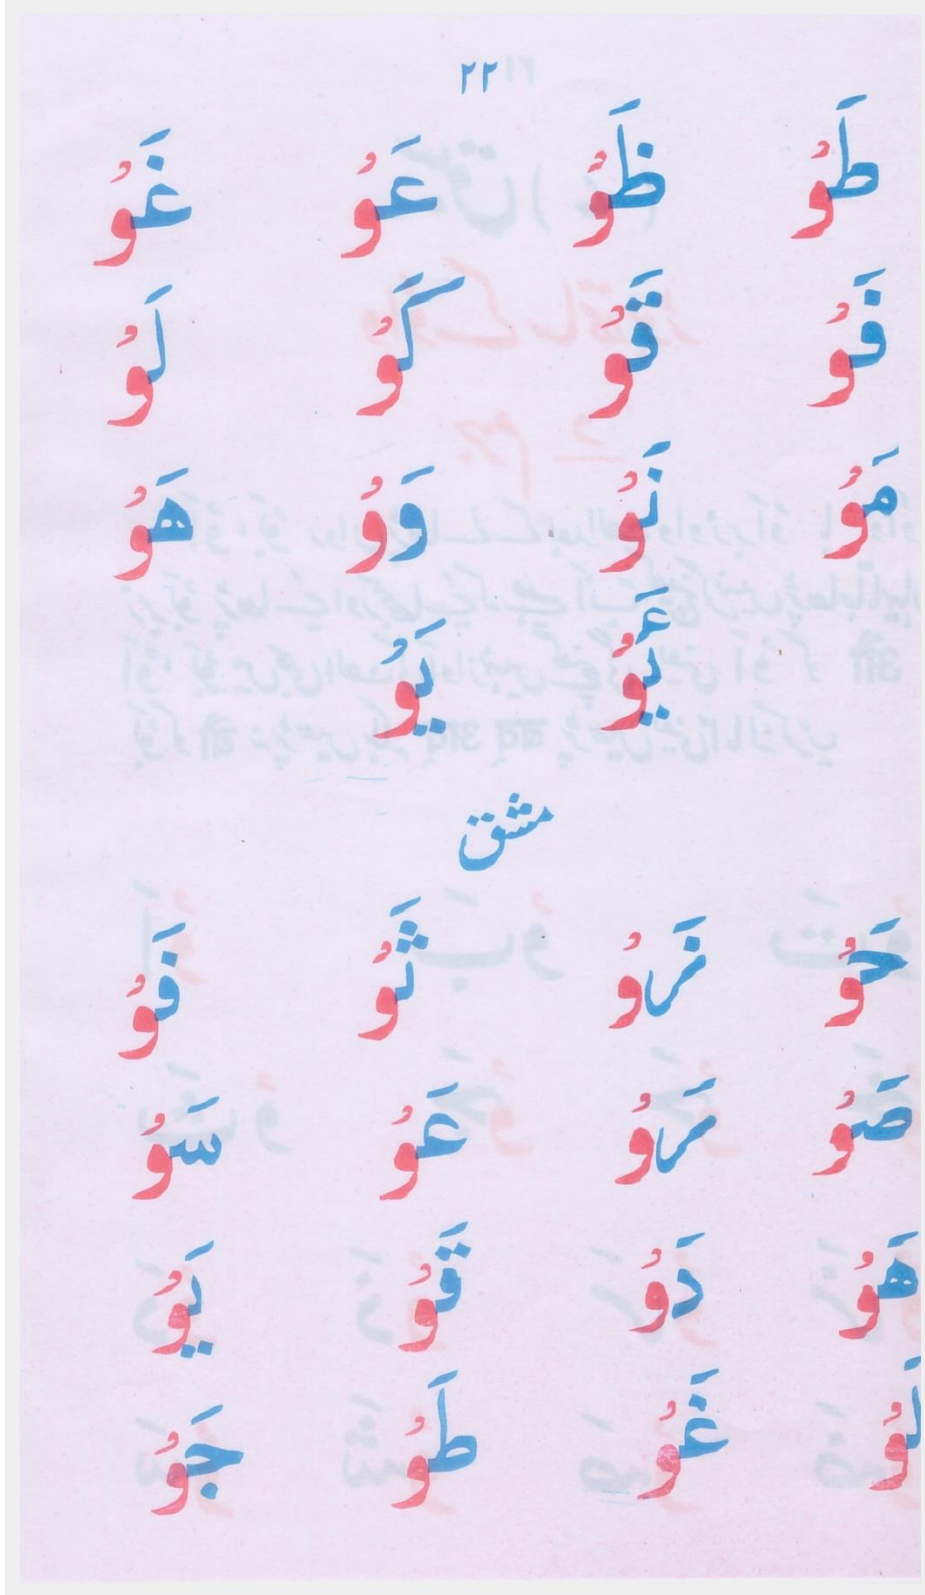 ٢٢
طَوْ ظَوْ عَوْ غَوْ
فَوْ قَوْ كَوْ لَوْ
مَوْ نَوْ وَوْ هَوْ
ئَوْ يَوْ
مشق
حَوْ زَوْ ثَوْ فَوْ
صَوْ رَوْ عَوْ سَوْ
هَوْ دَوْ قَوْ يَوْ
لَوْ غَوْ طَوْ جَوْ